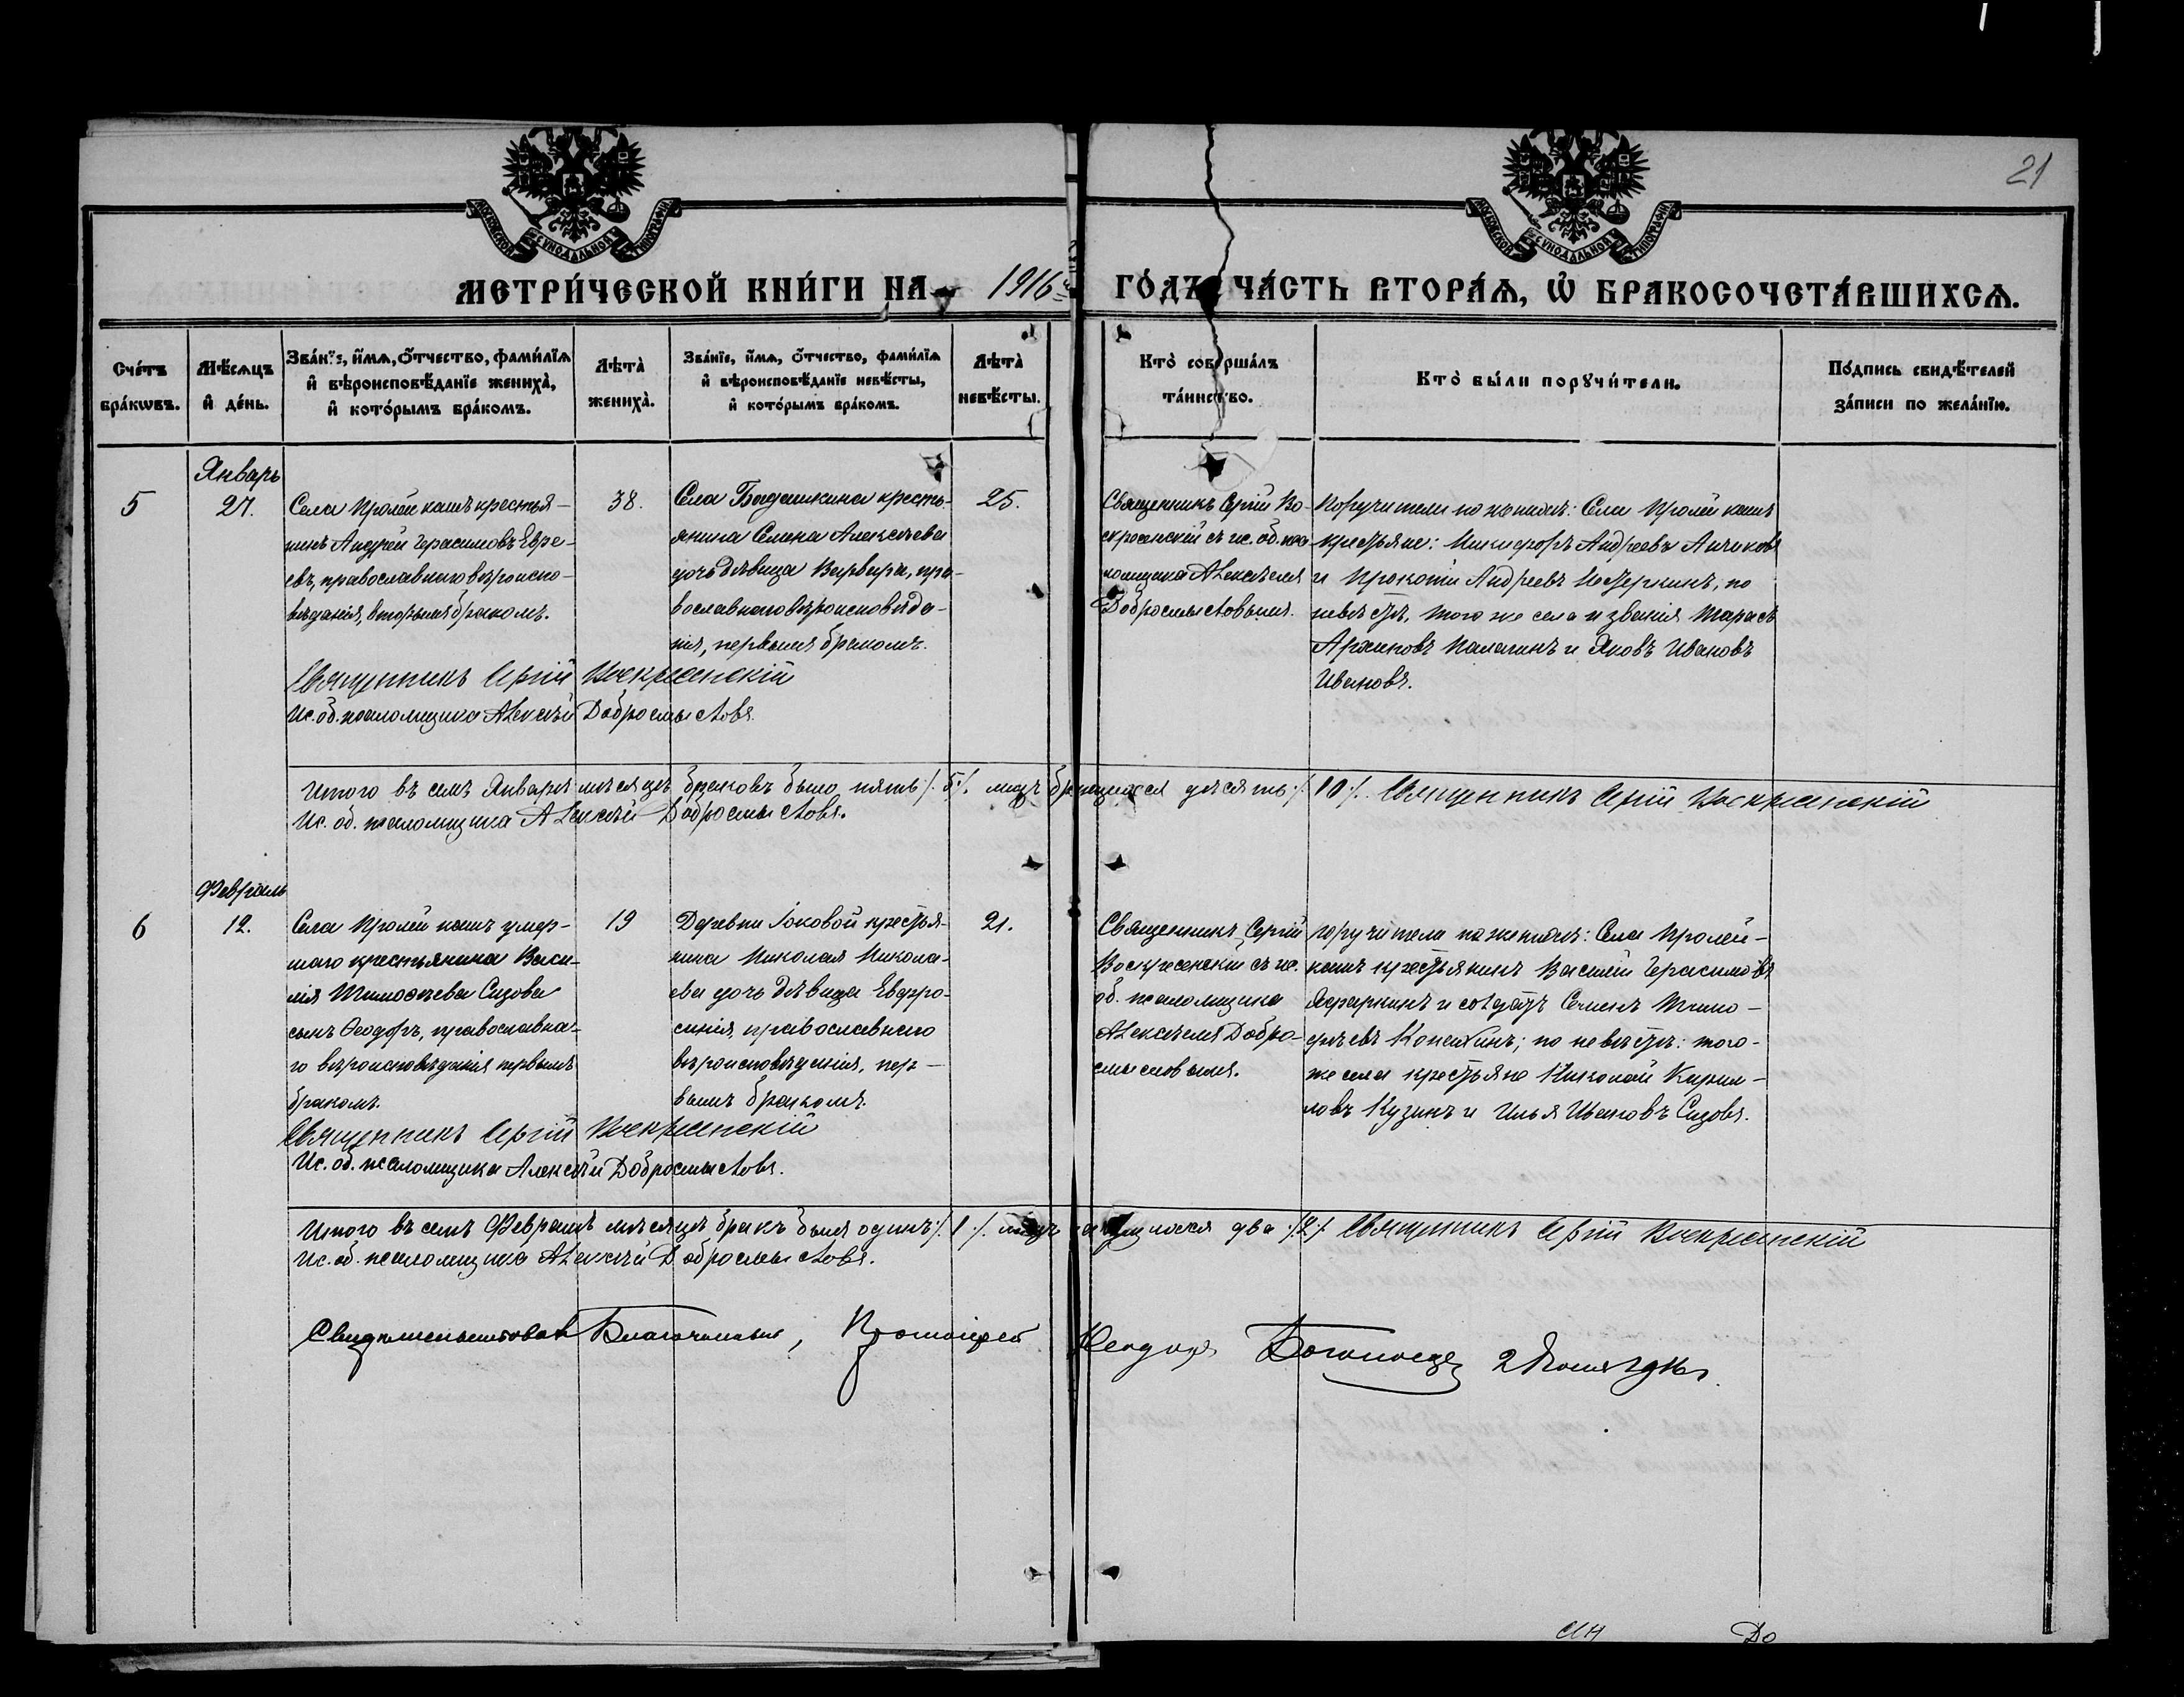 21
МОСКОВСКОЙ СУНОДАЛЬНОЙ ТИПОГРАФІИ
МОСКОВСКОЙ СУНОДАЛЬНОЙ ТИПОГРАФІИ
МЕТРИ́ЧЕСКОЙ КНИ́ГИ НА 1916 ГО́ДЪ ЧА́СТЬ ВТОРА́Ѧ, Ѡ҆ БРАКОСОЧЕТА́ВШИХСѦ.
Сче́тъ бра́кѡвъ.
Мѣ́сѧцъ и҆ де́нь.
Зва́нїе, и҆́мѧ, ѻ҆́тчество, фами́лїѧ
и҆ вѣроисповѣ́данїе жениха̀,
и҆ кото́рымъ бра́комъ.
Лѣта̀ жениха̀.
Зва́нїе, и҆́мѧ, ѻ҆́тчество, фами́лїѧ
и҆ вѣроисповѣ́данїе невѣ́сты,
и҆ кото́рымъ бра́комъ.
Лѣта̀ невѣ́сты.
Кто̀ соверша́лъ
та́инство.
Кто̀ бы́ли порꙋчи́тели.
По́дпись свидѣ́телей
за́писи по жела́нїю.
5
Январь
27.
Села Пролей кашъ крестья-
нинъ Андрей Герасимовъ Евре-
евъ, православнаго вѣроиспо-
вѣданія, вторымъ бракомъ.
38.
Села Бадашкина кресть-
янина Семена Алексѣева
дочь дѣвица Варвара, пра-
вославнаго вѣроисповѣда-
нія, первымъ бракомъ.
25.
Священникъ Сергій Во-
скресенскій съ ис. об. пса-
ломщика Алексѣемъ
Добросмысловымъ.
Поручители по женихѣ: Села Пролей кашъ
крестьяне: Никифоръ Андреевъ
и Прокопій Андреевъ Нестеркинъ, по
невѣстѣ, того же села и званія Тарасъ
Архиповъ Палагинъ и Яковъ Ивановъ
Ивановъ.
Священникъ Сергій Воскресенскій
Ис. об. псаломщика Алексѣй Добросмысловъ.
Итого въ семъ Январѣ мѣсяцѣ браковъ было пять /.5./. лицъ брачущихся десять /.10./. Священникъ Сергій Воскресенскій
Ис. об. псаломщика Алексѣй Добросмысловъ.
6
Февраль
12.
Села Пролей кашъ умер-
шаго крестьянина Васи-
лія Тимофѣева Сизова
сынъ Ѳеодоръ, православна-
го вѣроисповѣданія первымъ
бракомъ.
19
Деревни Іоковой крестья-
нина Николая Никола-
ева дочь дѣвица Евфро-
синія, православнаго
вѣроисповѣданія, пер-
вымъ бракомъ.
21.
Священникъ Сергій
Воскресенскій съ ис.
об. псаломщика
Алексѣемъ Добро-
смысловымъ.
Поручители по женихѣ: Села Пролей-
кашъ крестьянинъ Василій Герасимовъ
и солдатъ Семенъ Тимо-
фѣевъ; по невѣстѣ: того-
же села крестьяне Николай Кирил-
ловъ Кузинъ и Илья Ивановъ Сизовъ.
Священникъ Сергій Воскресенскій
Ис. об. псаломщика Алексѣй Добросмысловъ.
Итого въ семъ Февралѣ мѣсяцѣ бракъ былъ одинъ /.1./. лицъ два /.2./. Священникъ Сергій Воскресенскій
Ис. об. псаломщика Алексѣй Добросмысловъ.
Свидѣтельствовалъ Благочинный, Протоіерей
До